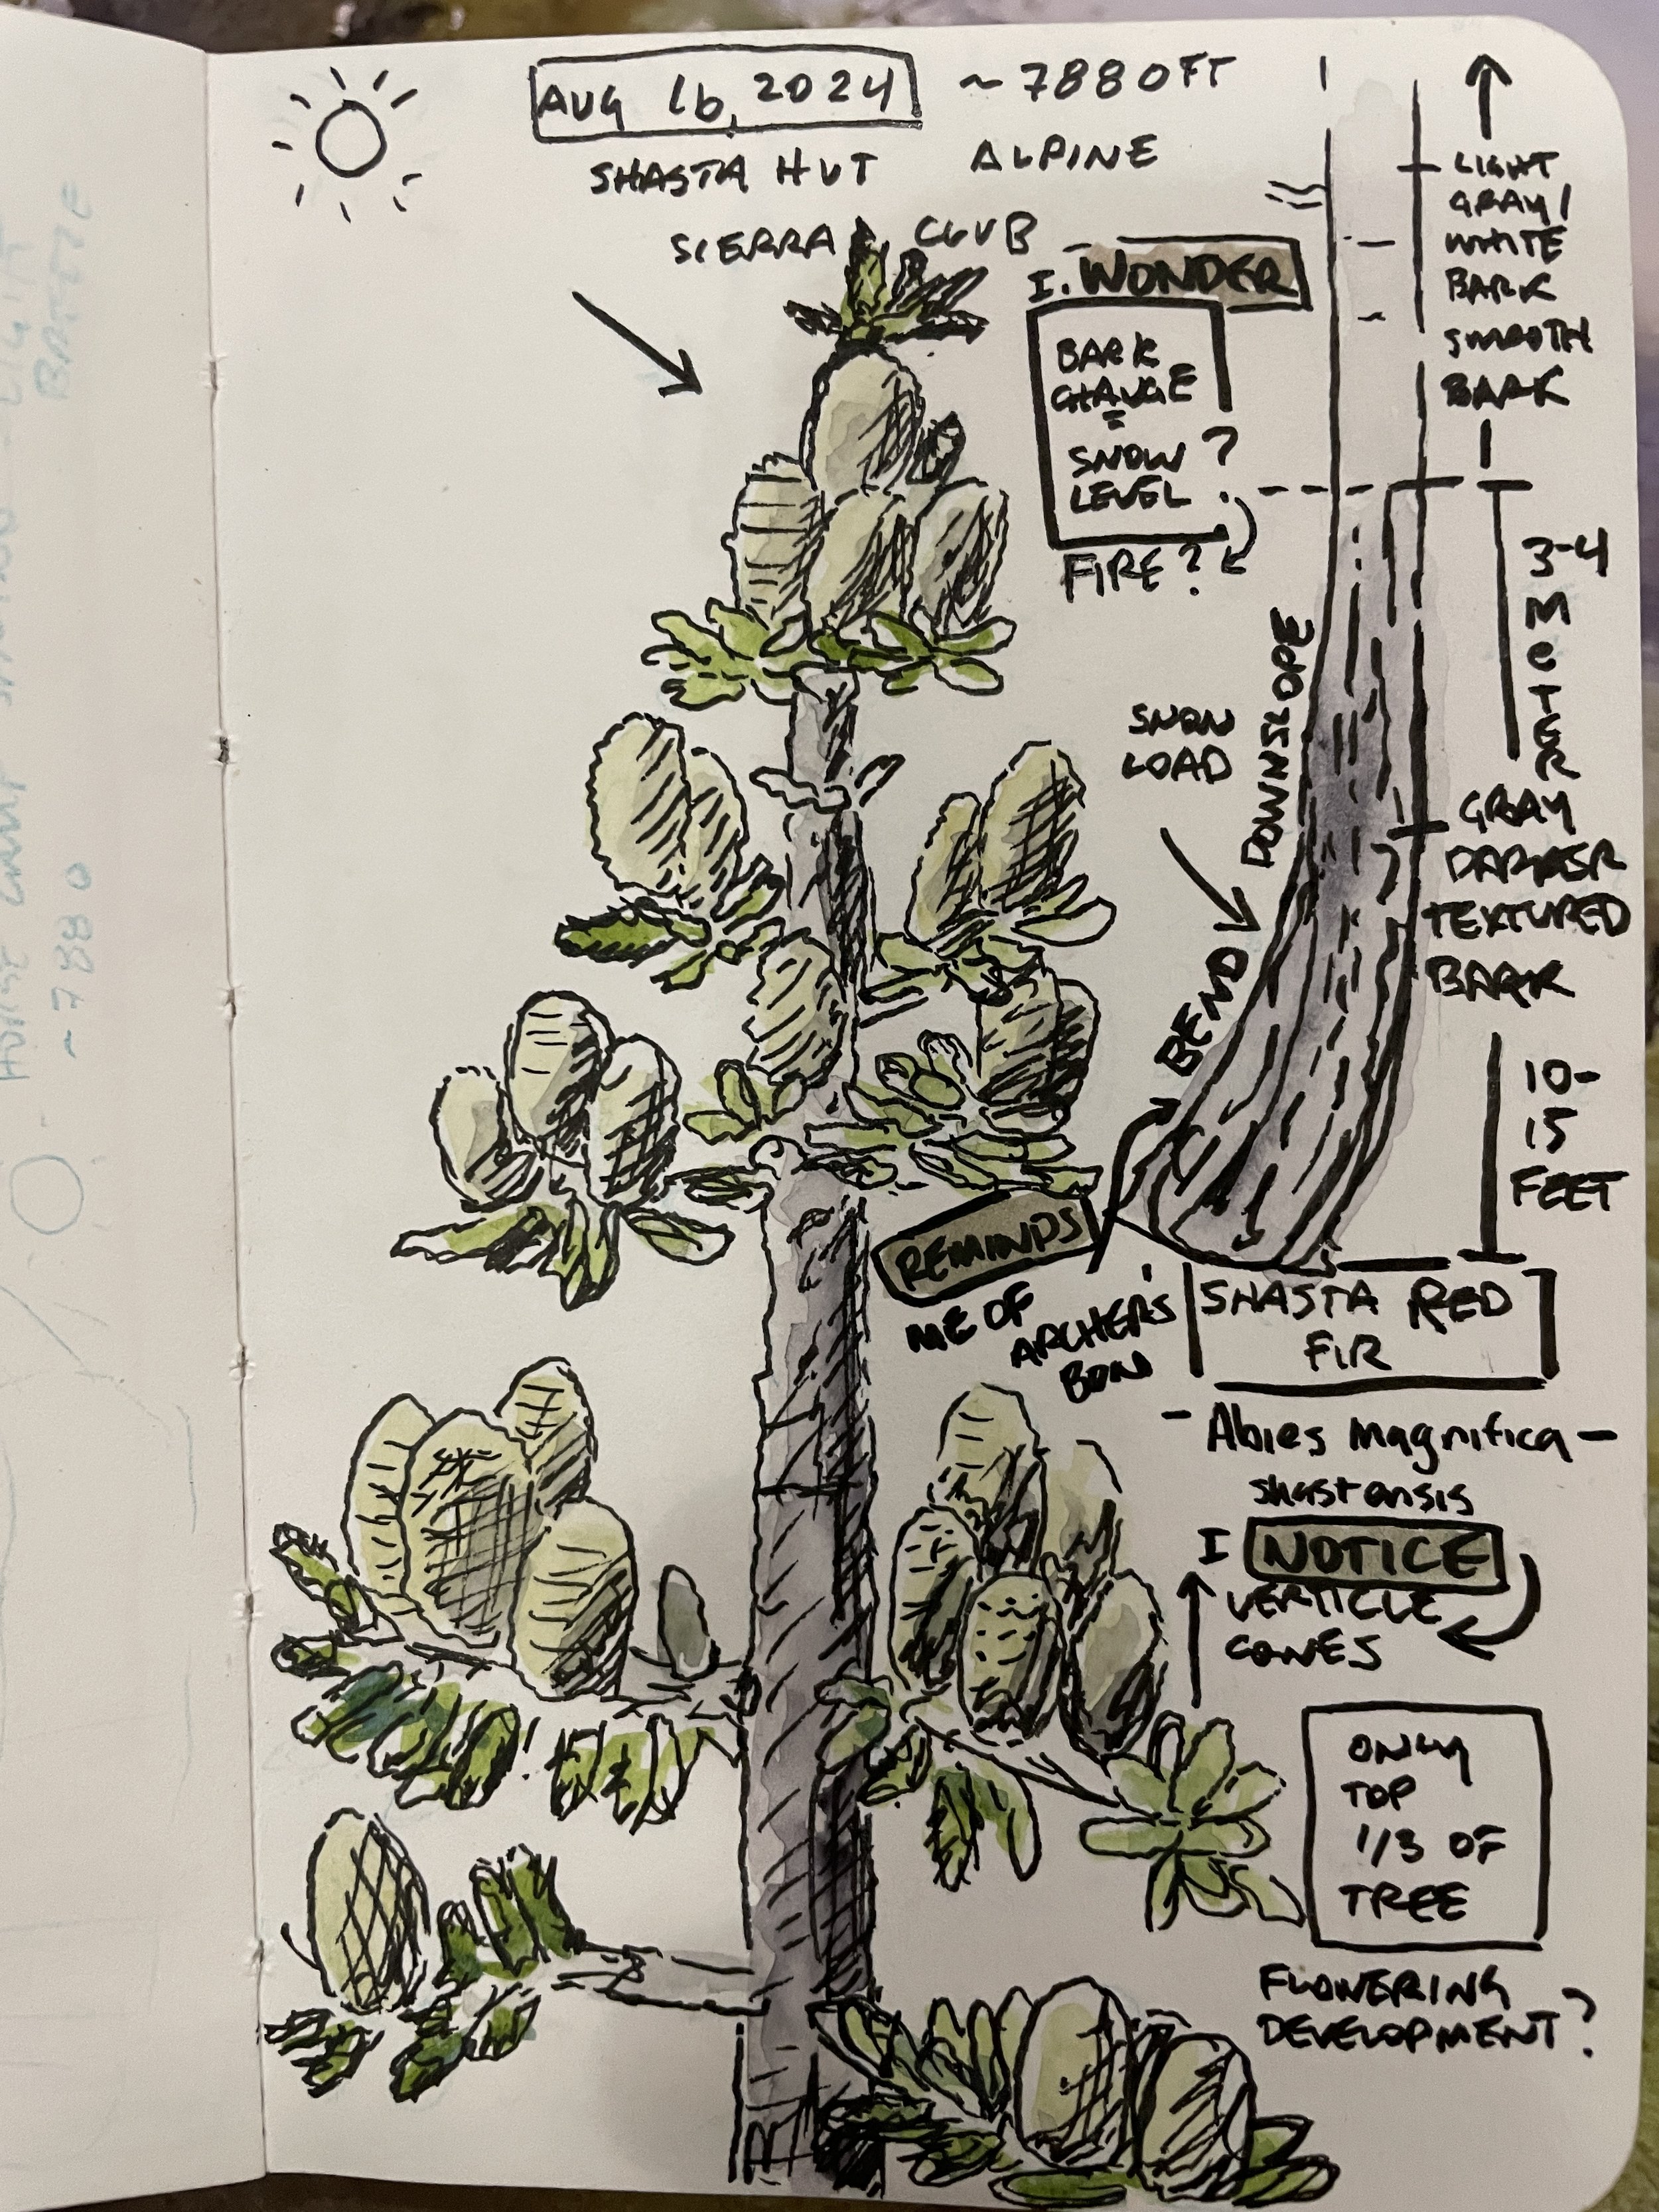 AUG 16, 2024 ~7880FT
SHASTA HUT ALPINE
SIERRA CLUB
I. WONDER
BARK
CHANGE
=
SNOW ?
LEVEL
FIRE?
LIGHT
GRAY/
WHITE
BARK
SMOOTH
BARK
3-4
MeTER
GRAY
DARKER
TEXTURED
BARK
10-
15
FEET
SNOW
LOAD
BEND DOWNSLOPE
REMINDS
ME OF
ARCHER'S
BOW
SHASTA RED
FIR
- Abies Magnifica -
shastensis
I NOTICE
VERTICLE
CONES
ONLY
TOP
1/3 OF
TREE
FLOWERING
DEVELOPMENT?
~7880